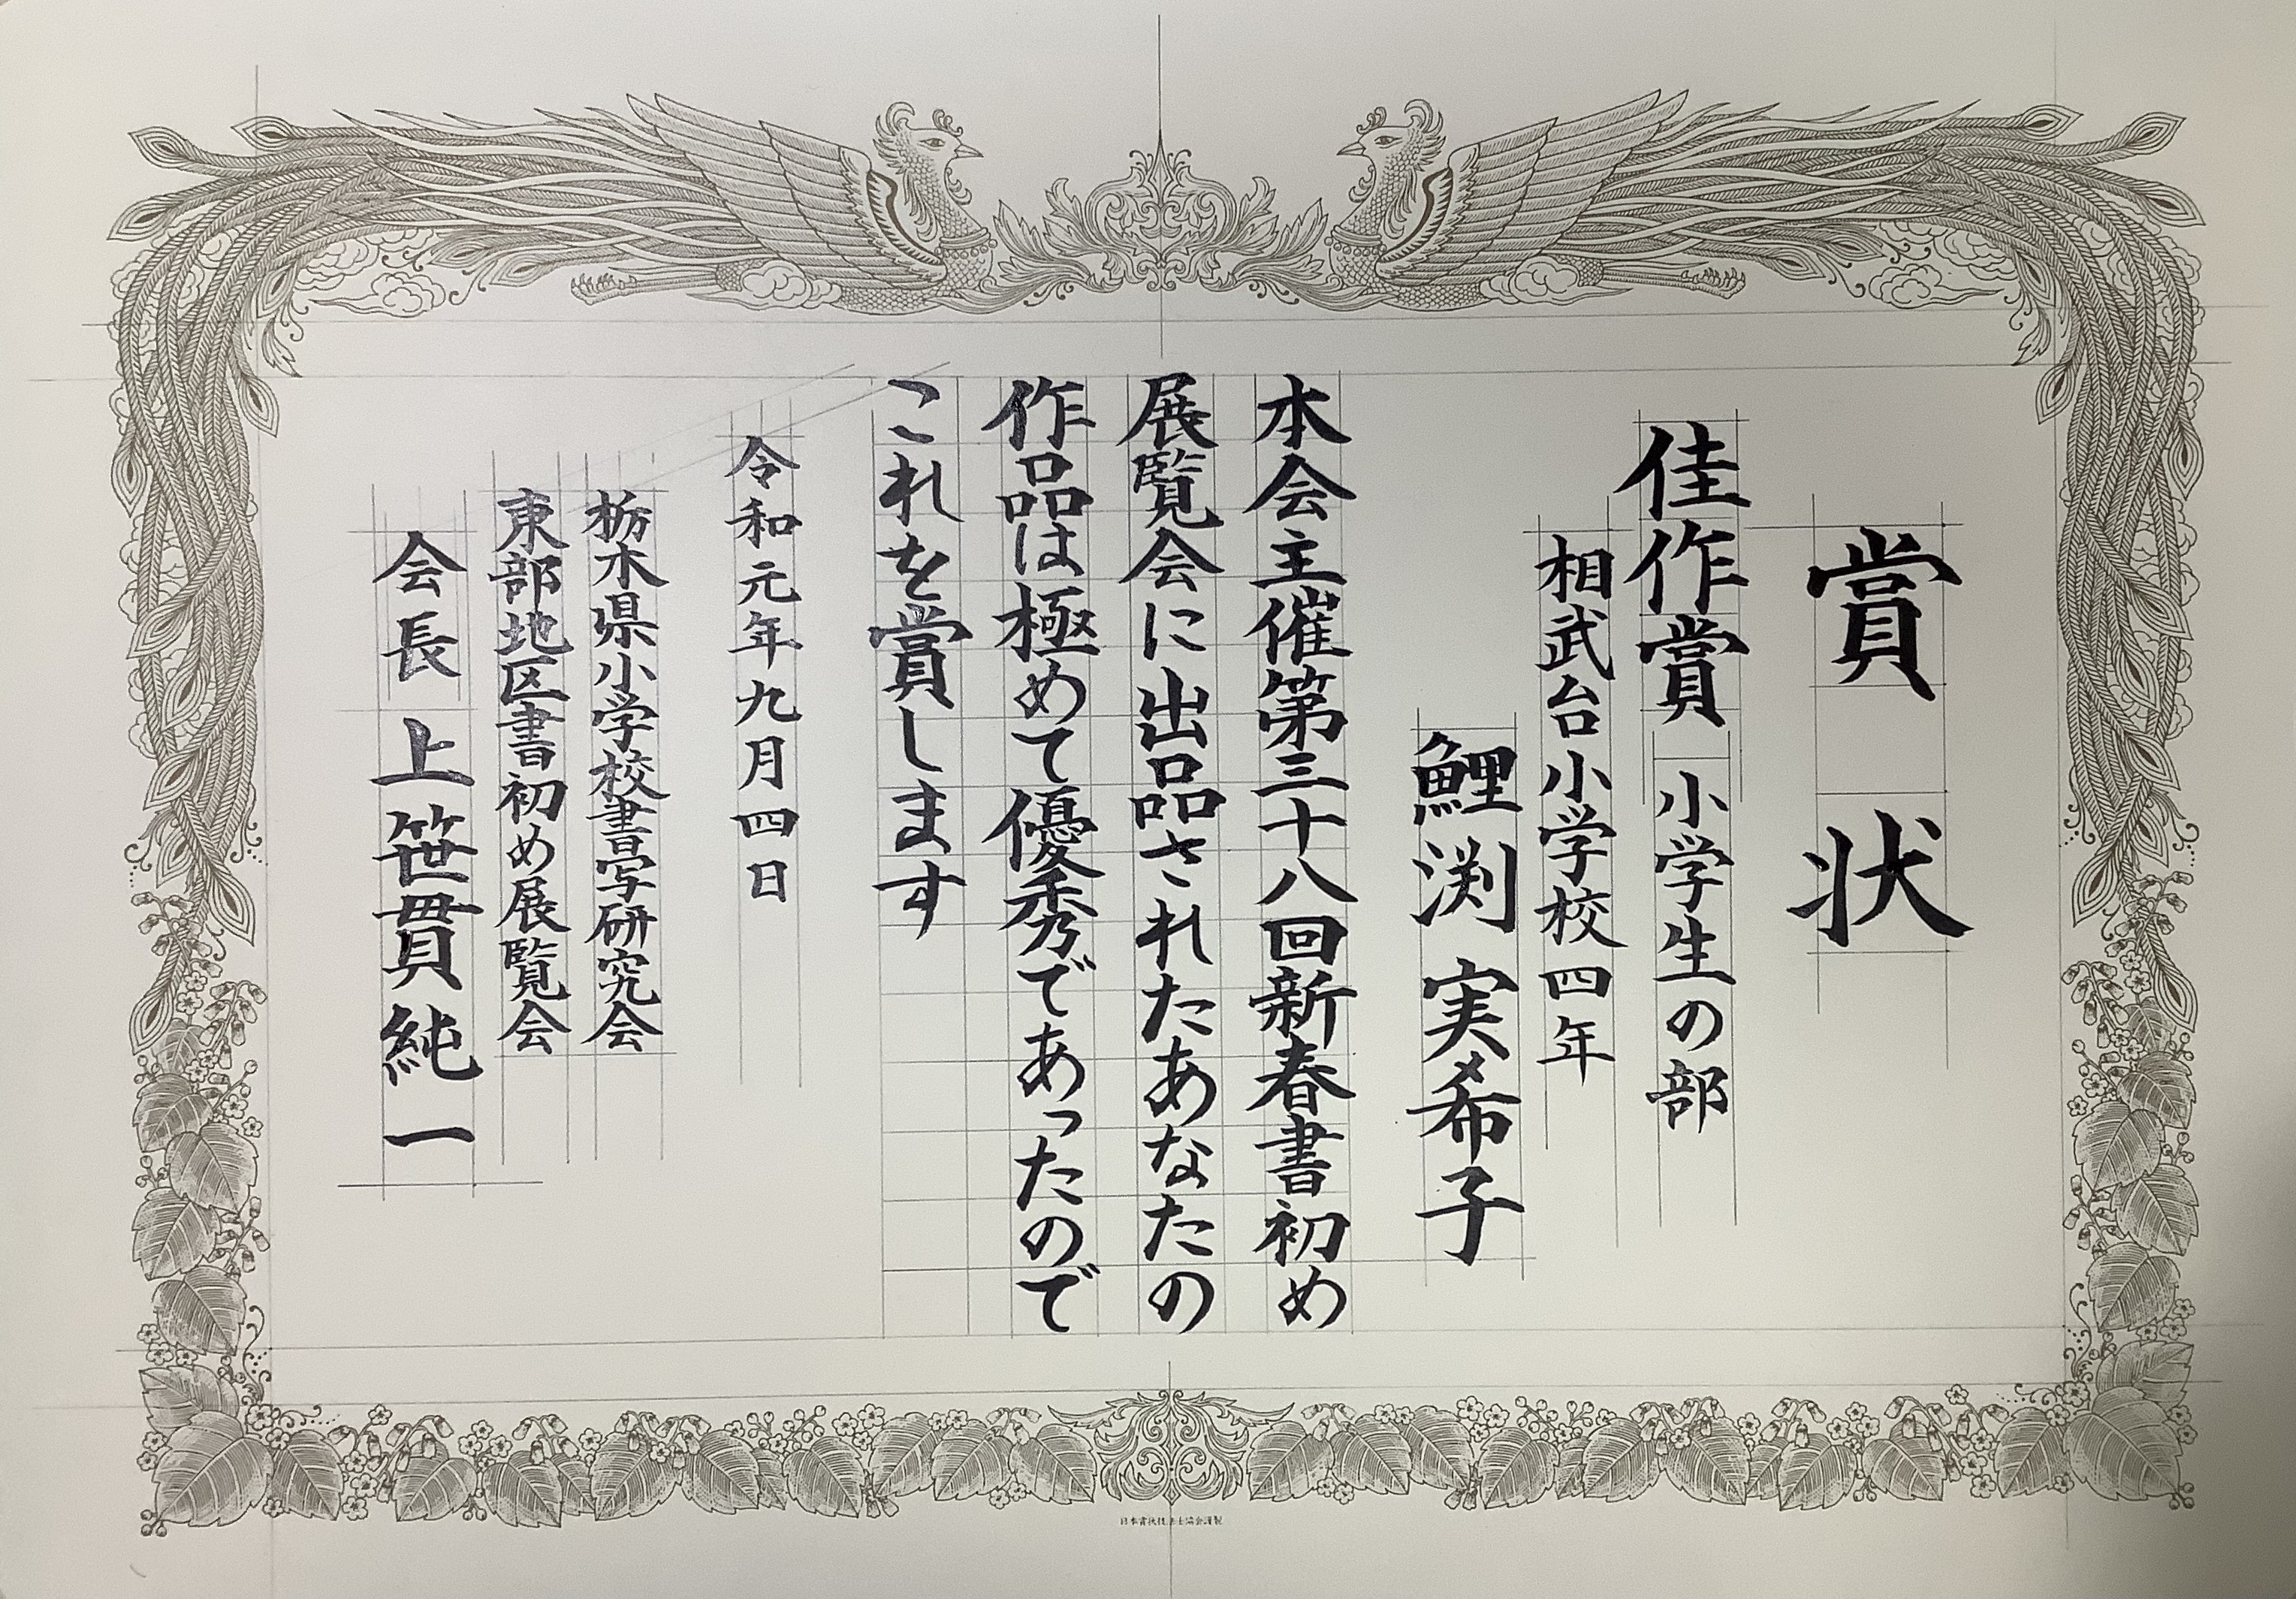 賞状
佳作賞 小学生の部
相武台小学校四年
鯉渕実希子
本会主催第三十八回新春書初め
展覧会に出品されたあなたの
作品は極めて優秀であったので
これを賞します
令和元年九月四日
栃木県小学校書写研究会
東部地区書初め展覧会
会長 上笹貫純一
日本賞状技法士協会謹製